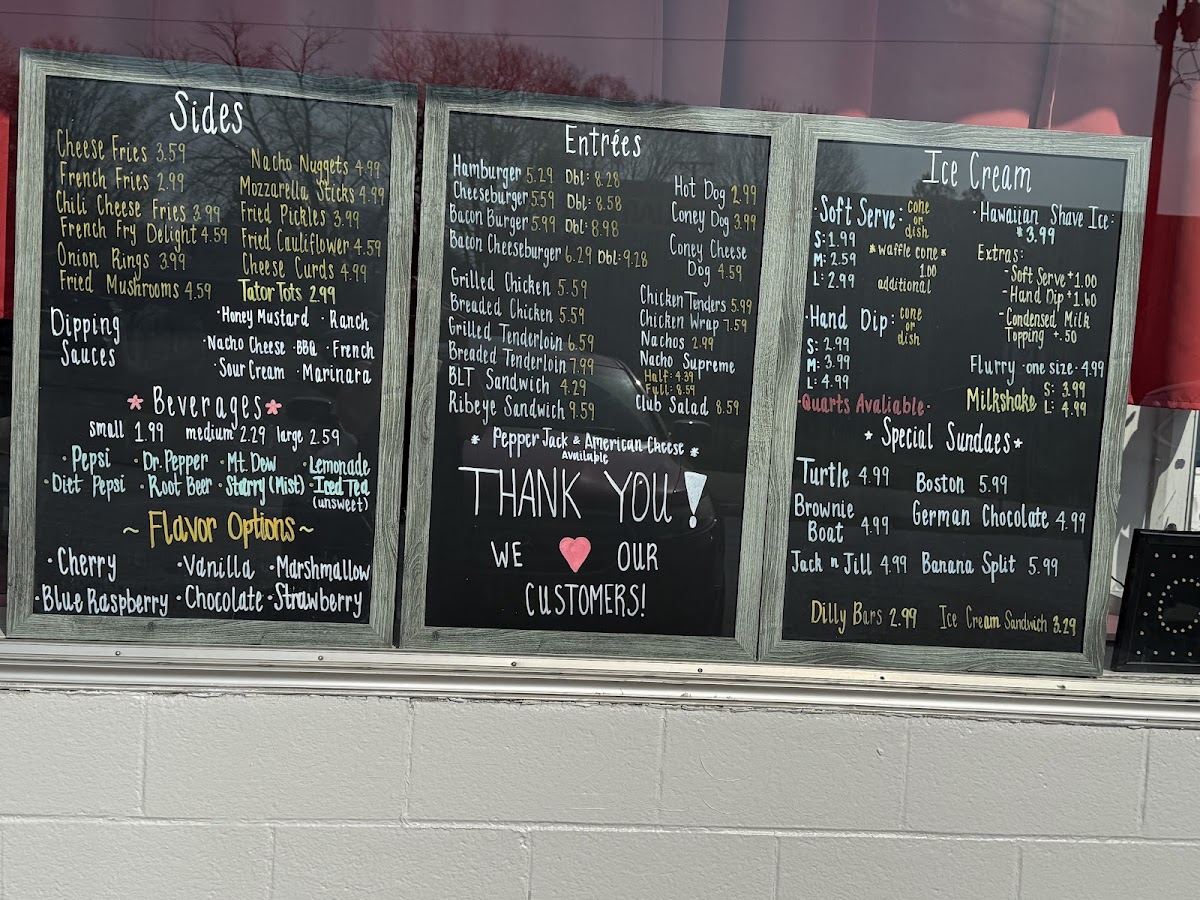 Sides
Cheese Fries 3.59
French Fries 2.99
Chili Cheese Fries 3.99
French Fry Delight 4.59
Onion Rings 3.99
Fried Mushrooms 4.59
Nacho Nuggets 4.99
Mozzarella Sticks 4.99
Fried Pickles 3.99
Fried Cauliflower 4.59
Cheese Curds 4.99
Tator Tots 2.99
Dipping
Sauces
·Honey Mustard ·Ranch
·Nacho Cheese ·BBQ ·French
·Sour Cream ·Marinara
*Beverages*
small 1.99 medium 2.29 large 2.59
·Pepsi ·Dr. Pepper ·Mt. Dew ·Lemonade
·Diet Pepsi ·Root Beer ·Starry (Mist) ·Iced Tea
(unsweet)
~ Flavor Options ~
·Cherry ·Vanilla ·Marshmallow
·Blue Raspberry ·Chocolate ·Strawberry
Entrées
Hamburger 5.29 Dbl: 8.28
Cheeseburger 5.59 Dbl: 8.58
Bacon Burger 5.99 Dbl: 8.98
Bacon Cheeseburger 6.29 Dbl: 9.28
Hot Dog 2.99
Coney Dog 3.99
Coney Cheese
Dog 4.59
Grilled Chicken 5.59
Breaded Chicken 5.59
Grilled Tenderloin 6.59
Breaded Tenderloin 7.99
BLT Sandwich 4.29
Ribeye Sandwich 9.59
Chicken Tenders 5.99
Chicken Wrap 7.59
Nachos 2.99
Nacho Supreme
Half: 4.39
Full: 8.59
Club Salad 8.59
* Pepper Jack & American Cheese *
Available
THANK YOU!
WE ♥ OUR
CUSTOMERS!
Ice Cream
·Soft Serve: cone
or
dish
S: 1.99
M: 2.59
L: 2.99
*waffle cone*
1.00
additional
·Hand Dip: cone
or
dish
S: 2.99
M: 3.99
L: 4.99
·Quarts Avaliable·
·Hawaiian Shave Ice:
$3.99
Extras:
-Soft Serve +1.00
-Hand Dip +1.60
-Condensed Milk
Topping +.50
Flurry ·one size· 4.99
Milkshake S: 3.99
L: 4.99
*Special Sundaes*
Turtle 4.99
Brownie
Boat 4.99
Jack n Jill 4.99
Boston 5.99
German Chocolate 4.99
Banana Split 5.99
Dilly Bars 2.99 Ice Cream Sandwich 3.29